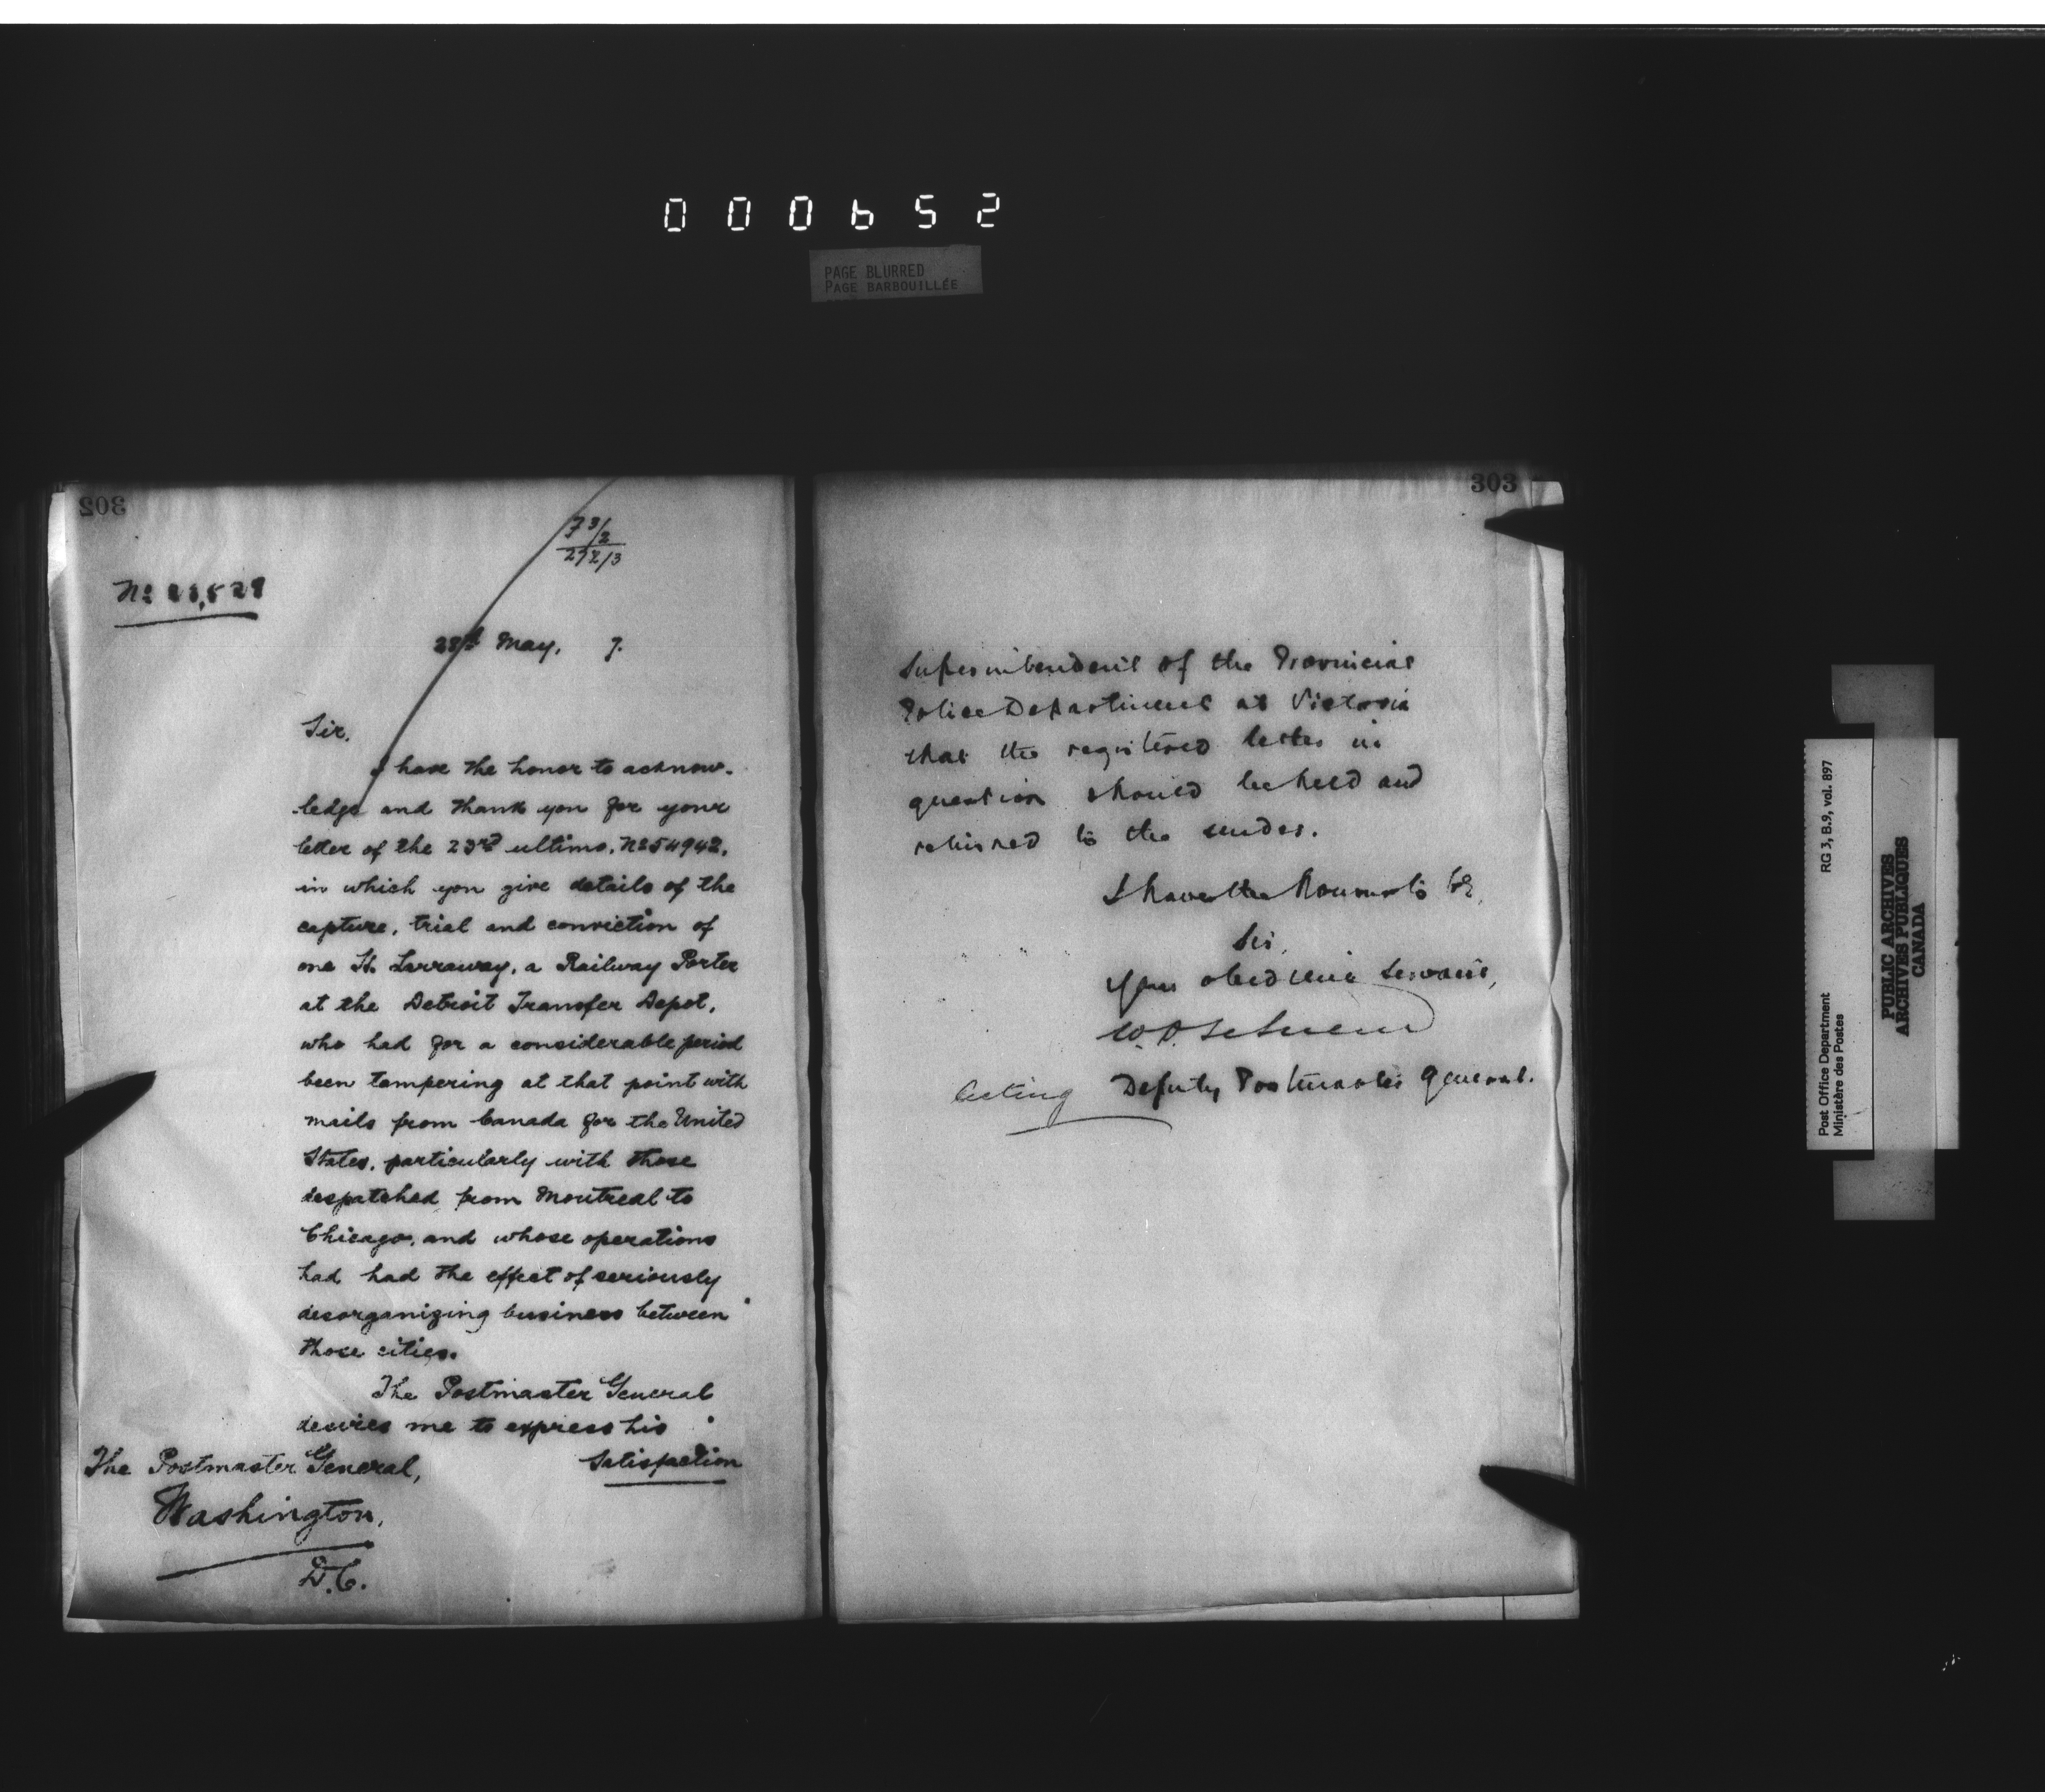 000652
PAGE BLURRED
PAGE BARBOUILLÉE
302
73/2
272/3
28th May, 7.
Sir,
I have the honor to acknow-
ledge and thank you for your
letter of the 23rd ultimo, No 54942,
in which you give details of the
capture, trial and conviction of
one H. Larraway, a Railway Porter
at the Detroit Transfer Depot,
who had for a considerable period
been tampering at that point with
mails from Canada for the United
States, particularly with those
despatched from Montreal to
Chicago, and whose operations
had had the effect of seriously
desorganizing business between
those cities.
The Postmaster General
desires me to express his
Satisfaction
The Postmaster General,
Washington,
D.C.
303
Superintendent of the Provincial
Police Department at Victoria
that the registered letter in
question should be held and
returned to the sender.
I have the honour to be,
Sir,
Your obedient Servant,
Acting Deputy Postmaster General.
Post Office Department
Ministère des Postes
RG 3, B.9, vol. 897
PUBLIC ARCHIVES
ARCHIVES PUBLIQUES
CANADA